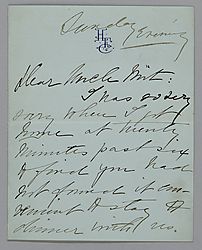 Sunday Evening
Dear Uncle Mit:
I was so very
sorry when I got
home at twenty
minutes past six
& find you had
not found it con-
venient to stay to
dinner with us.